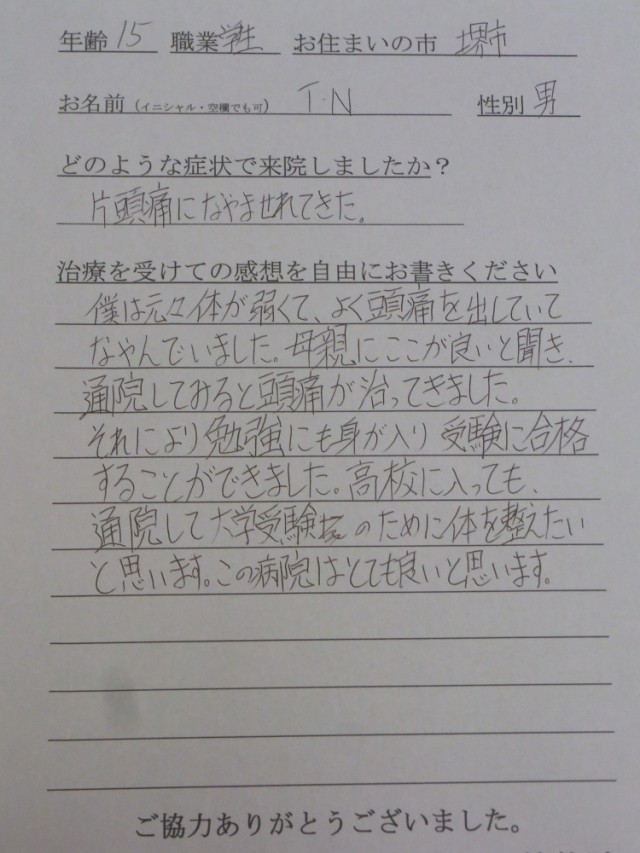 年齢 15 職業 学生 お住まいの市 堺市
お名前 (イニシャル・空欄でも可) T・N 性別 男
どのような症状で来院しましたか?
片頭痛になやませれてきた。
治療を受けての感想を自由にお書きください
僕は元々体が弱くて、よく頭痛を出していて
なやんでいました。母親にここが良いと聞き、
通院してみると頭痛が治ってきました。
それにより勉強にも身が入り受験に合格
することができました。高校に入っても、
通院して大学受験のために体を整えたい
と思います。この病院はとても良いと思います。
ご協力ありがとうございました。